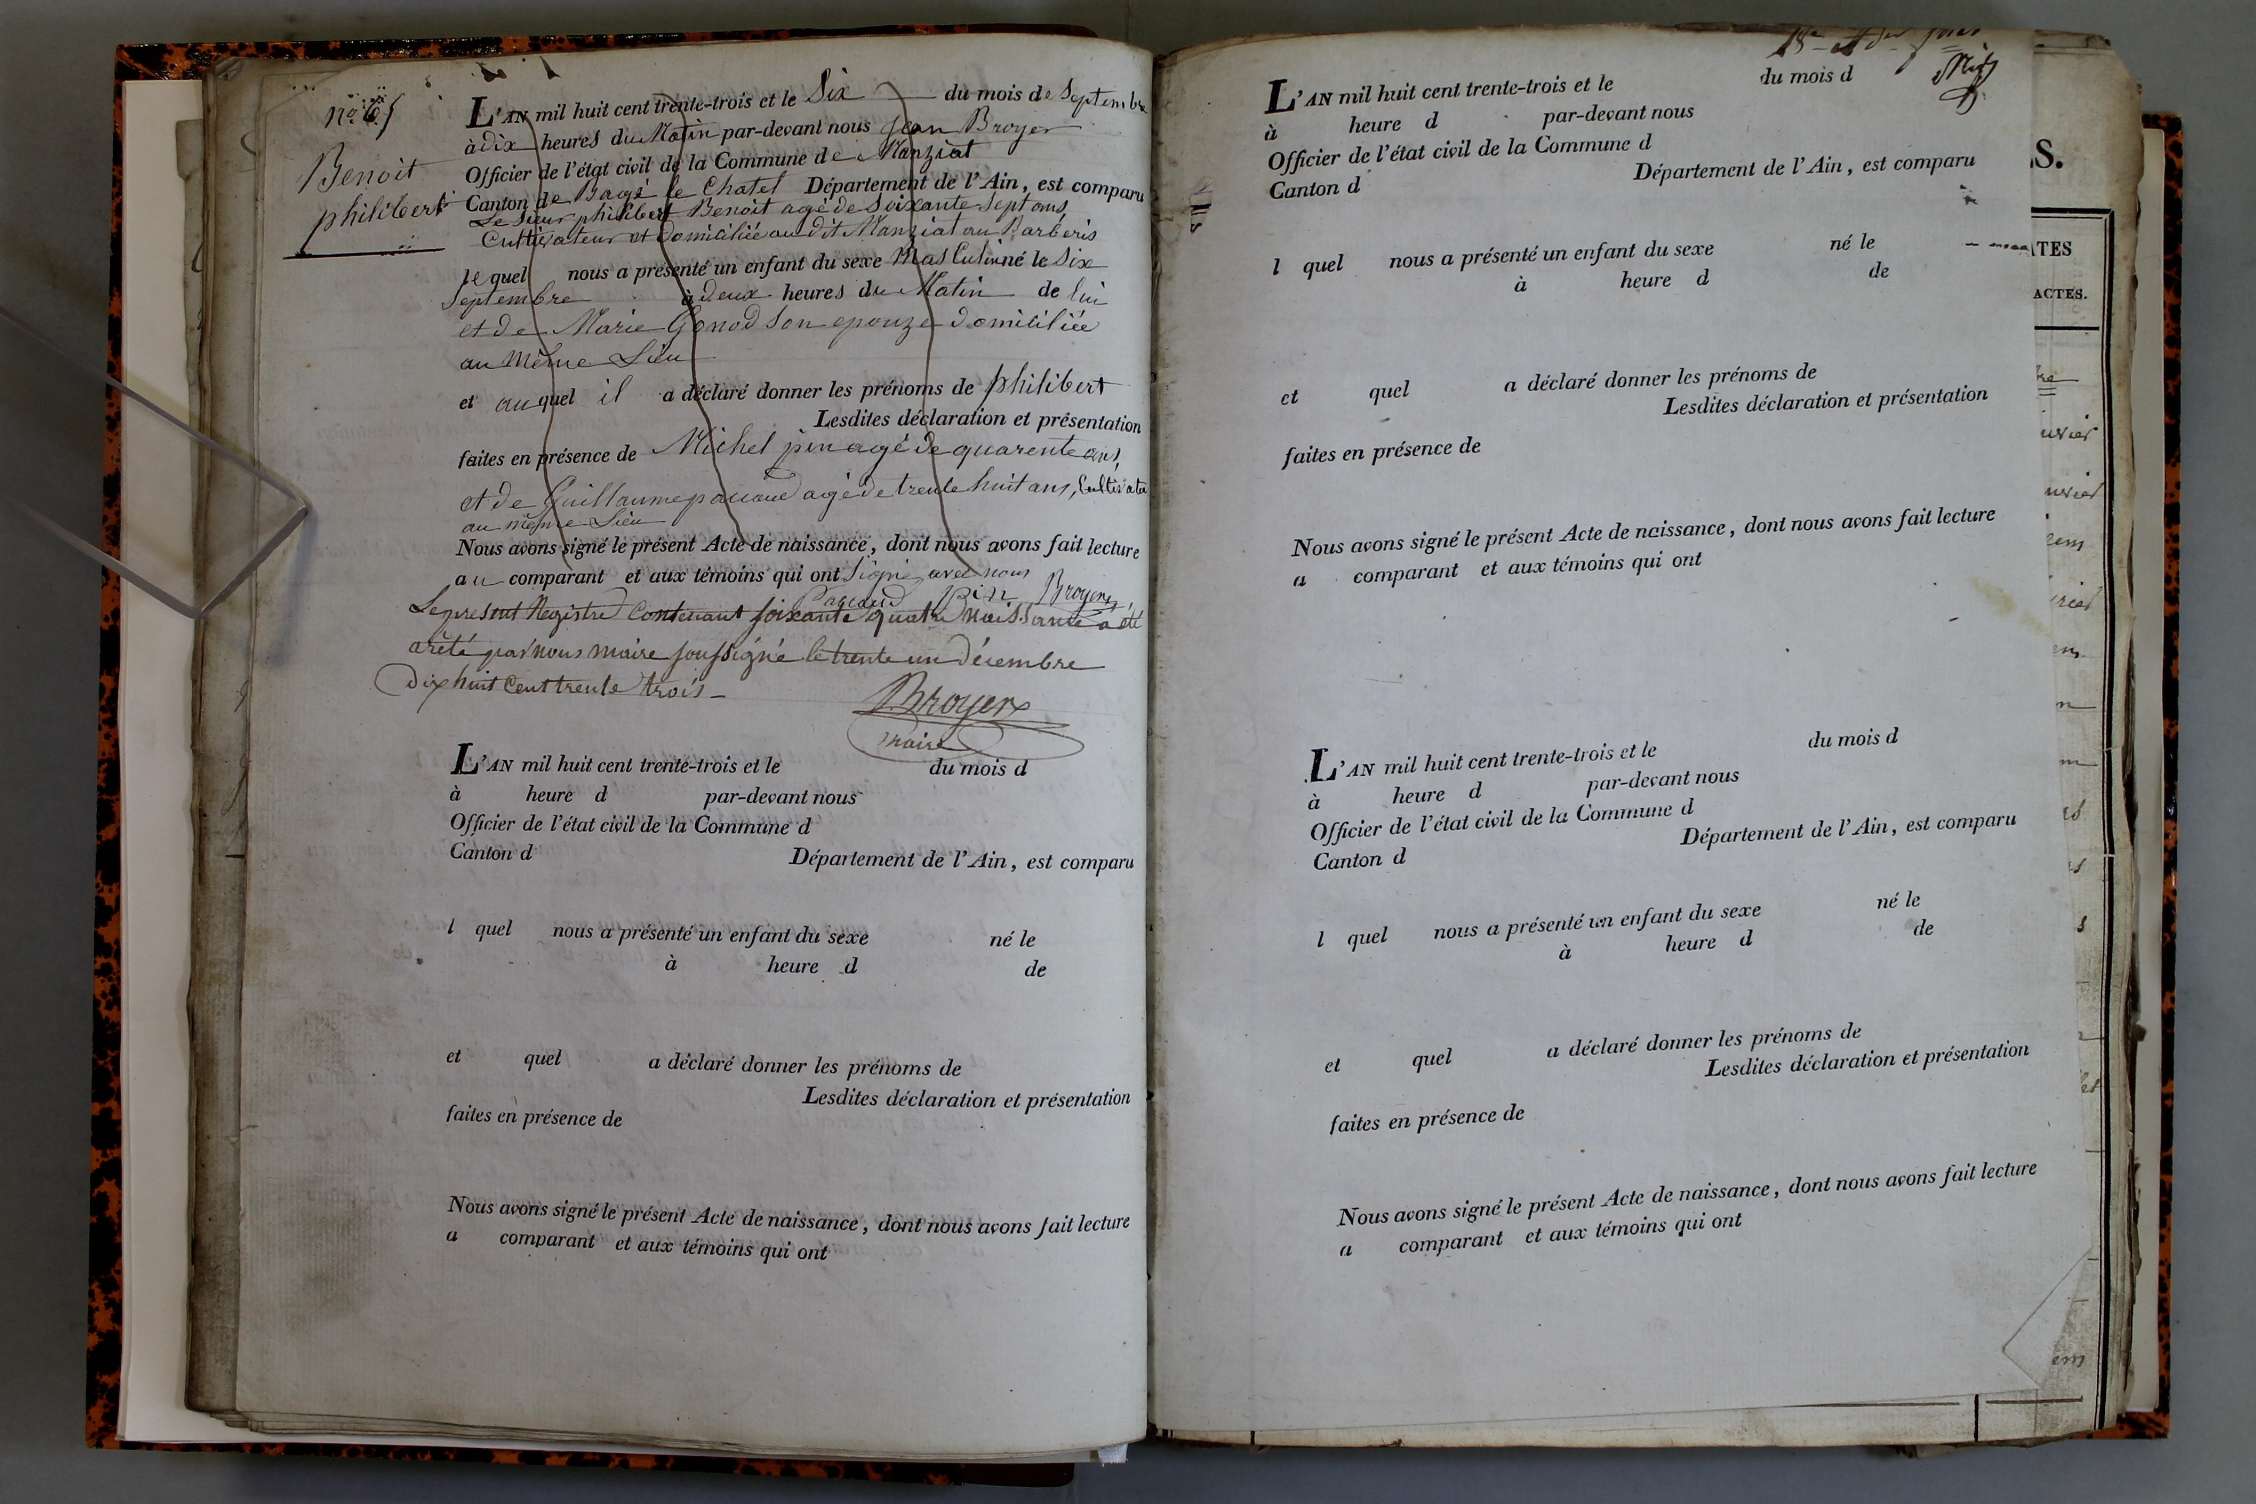 nº 65
Benoit
philibert
L'AN mil huit cent trente-trois et le Six du mois de Septembre
à dix heures du Matin par-devant nous Jean Broyer
Officier de l'état civil de la Commune de Manziat
Canton de Bagé le Chatel Département de l'Ain, est comparu
Le Sieur philibert Benoit agé de Soixante Sept ans,
Cultivateur et domiciliée au dit Manziat au Barberis
le quel nous a présenté un enfant du sexe Masculin né le Six
Septembre à deux heures du Matin de lui
et de Marie Gonod son epouze domiciliée
au même Lieu
et au quel il a déclaré donner les prénoms de philibert
Lesdites déclaration et présentation
faites en présence de Michel pin agé de quarente ans,
et de Guillaume pacaud agé de trente huit ans, Cultivateur
au même Lieu
Nous avons signé le présent Acte de naissance, dont nous avons fait lecture
au comparant et aux témoins qui ont Signé avec nous
Pacaud pin Broyer
Le present Registre Contenant soixante quatre Naissance a été
arêté par nous maire soussigné le trente un décembre
dix huit Cent trente trois
Broyer
maire
L'AN mil huit cent trente-trois et le du mois d
à heure d par-devant nous
Officier de l'état civil de la Commune d
Canton d Département de l'Ain, est comparu
l quel nous a présenté un enfant du sexe né le
à heure d de
et quel a déclaré donner les prénoms de
Lesdites déclaration et présentation
faites en présence de
Nous avons signé le présent Acte de naissance, dont nous avons fait lecture
a comparant et aux témoins qui ont
L'AN mil huit cent trente-trois et le du mois d
à heure d par-devant nous
Officier de l'état civil de la Commune d
Canton d Département de l'Ain, est comparu
l quel nous a présenté un enfant du sexe né le
à heure d de
et quel a déclaré donner les prénoms de
Lesdites déclaration et présentation
faites en présence de
Nous avons signé le présent Acte de naissance, dont nous avons fait lecture
a comparant et aux témoins qui ont
L'AN mil huit cent trente-trois et le du mois d
à heure d par-devant nous
Officier de l'état civil de la Commune d
Canton d Département de l'Ain, est comparu
l quel nous a présenté un enfant du sexe né le
à heure d de
et quel a déclaré donner les prénoms de
Lesdites déclaration et présentation
faites en présence de
Nous avons signé le présent Acte de naissance, dont nous avons fait lecture
a comparant et aux témoins qui ont
S.
ATES
ACTES.